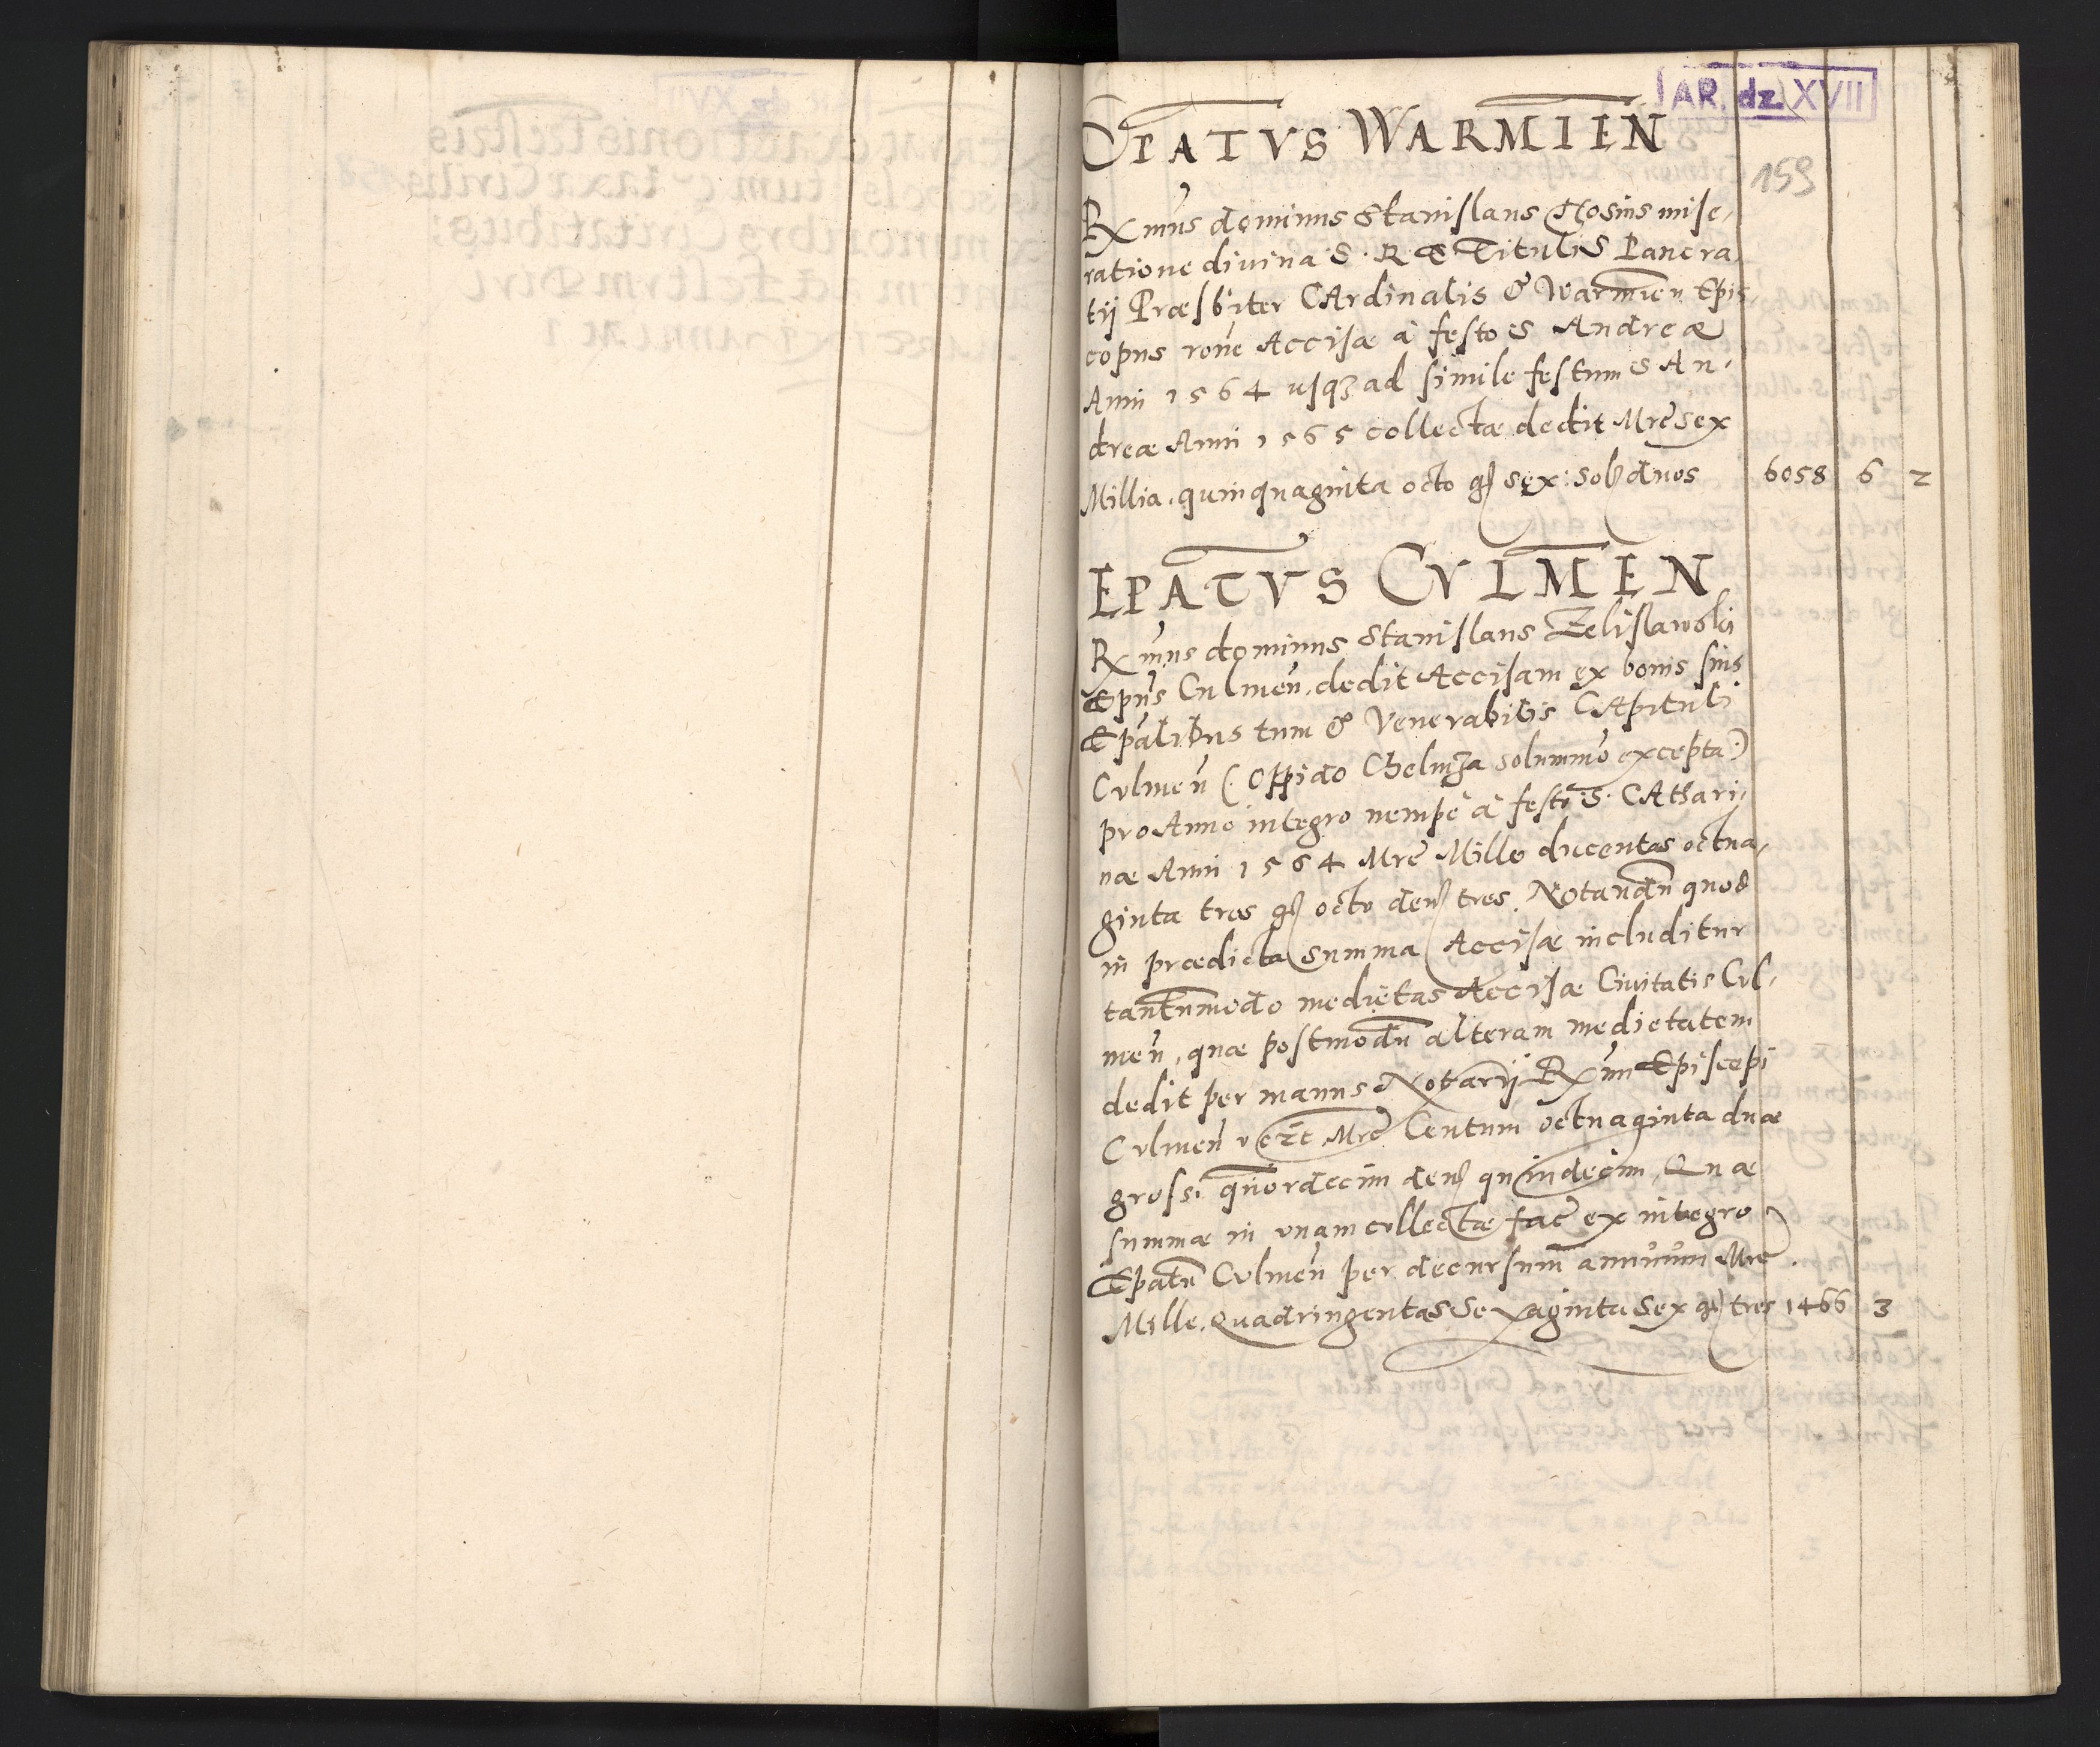 AR. dz. XVII
EPATVS WARMIEN
159
Rxmus dominus Stanislaus Hosius mise,
ratione divina S. R. E Tituli S Pancra,
tij Præsbiter CArdinalis & Warmien Epis,
copus rōne Accisæ à festo S Andreæ
Anni 1564 usqȝ ad simile festum S An,
dreæ Anni 1565 collectæ dedit Mrc sex
Millia quinquaginta octo gš sex sol duos 6058 6 2
EPATVS CVLMEN
Rxmus dominus Stanislaus Zelislawski
Epūs Culmen̄ dedit Accisam ex bonis suis
Epālibus tum & Venerabilis CApituli
Cvlmen̄ (Oppido Chelmza solummō excepta)
pro Anno integro nempè à festo S. CAthari,
næ Anni 1564 Mrc Mille ducentas octua,
ginta tres gš octo den tres. Notandū quod
in prædicta Summa Accisæ includitur
tantummodo medietas Accisæ Civitatis Cul,
men̄, quæ postmodū alteram medietatem
dedit per manus Notarij Rxmi Episcopi
Cvlmen̄ vȝt Mrc Centum octuaginta duæ
grossi quordecim den quindecim, Quæ
summæ in vnam collectæ fac̄ ex integro
Epatū Cvlmen̄ per decursum annuum Mrc
Mille Quadringentas Sexaginta Sex gš tres 1466 3